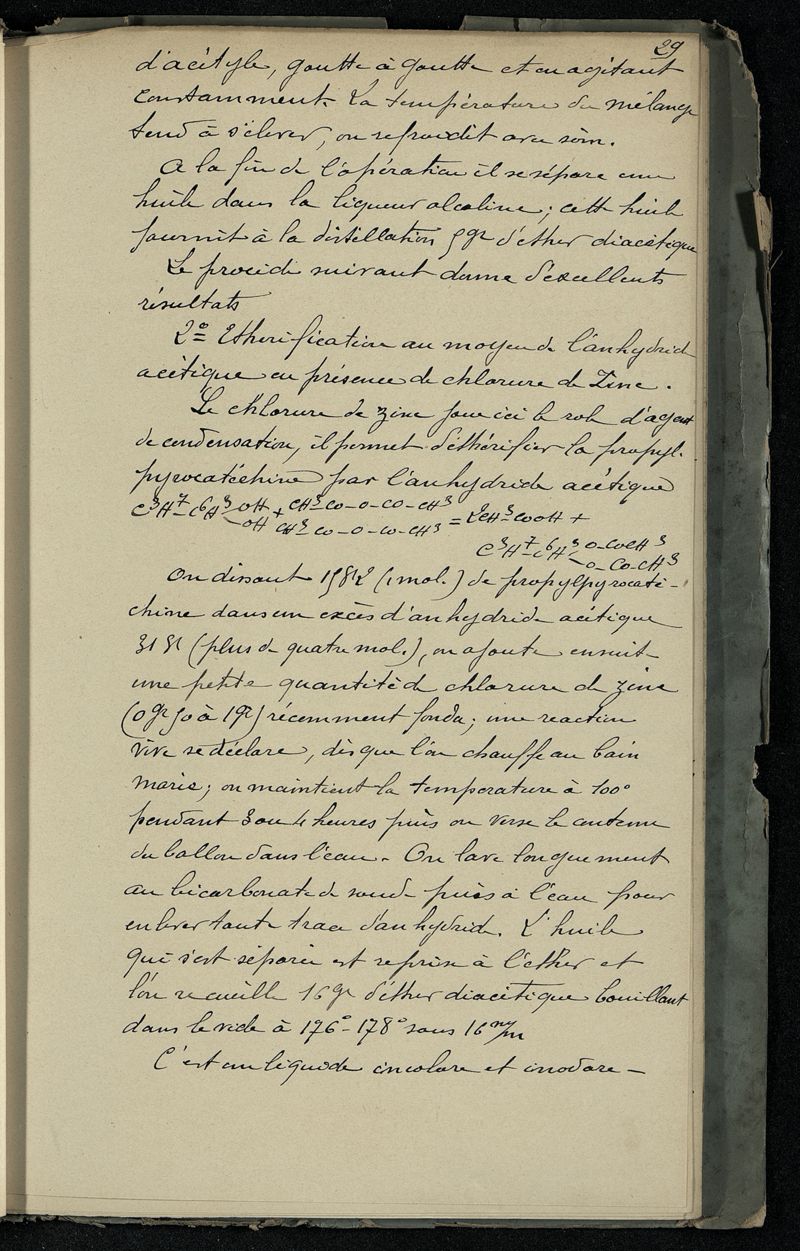 29
d'acétyle, goutte à goutte et en agitant
constamment. La température du mélange
tend à s'élever, on refroidit avec soin.
A la fin de l'opération il se sépare une
huile dans la liqueur alcaline ; cette huile
fournit à la distillation 5gr d'éther diacétique
Le procédé suivant donne d'excellents
résultats
2º Etherification au moyen de l'anhydride
acétique en présence de chlorure de Zinc.
Le chlorure de zinc joue ici le role d'agent
de condensation, il permet d'éthérifier la propyl-
pyrocatéchine par l'anhydride acétique
C³H⁷-C⁶H³-OH + CH³-CO-O-CO-CH³
-OH CH³-CO-O-CO-CH³ = 2CH³-COOH +
C³H⁷-C⁶H³-O-COCH³
-O-CO-CH³
On dissout (1 mol.) de propylpyrocaté-
chine dans un excès d'anhydride acétique
(plus de quatre mol.), on ajoute ensuite
une petite quantité de chlorure de zinc
(0gr 50 à 1gr) récemment fondu ; une reaction
vive se déclare, dès que l'on chauffe au bain
marie ; on maintient la temperature à 100°
pendant 3 ou 4 heures puis on verse le contenu
du ballon dans l'eau. On lave longuement
au bicarbonate de soude puis à l'eau pour
enlever toute trace d'anhydride. L'huile
qui s'est séparée est reprise à l'éther et
l'on recueille 16gr d'éther diacétique bouillant
dans le vide à 176°-178° sous 16 m/m
C'est un liquide incolore et inodore -